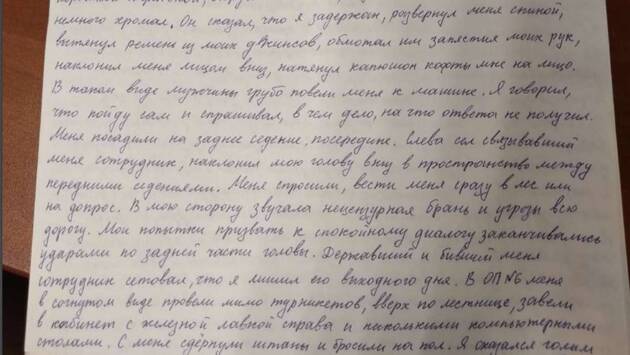 немного хромал. Он сказал, что я задержан, развернул меня спиной,
вытянул ремень из моих джинсов, обмотал им запястия моих рук,
наклонил меня лицом вниз, натянул капюшон кофты мне на лицо.
В таком виде мужчины грубо повели меня к машине. Я говорил,
что пойду сам и спрашивал, в чем дело, на что ответа не получил.
Меня посадили на заднее седение, посередине. Слева сел связывавший
меня сотрудник, наклонил мою голову вниз в пространство между
передними сидениями. Меня спросили, вести меня сразу в лес или
на допрос. В мою сторону звучала нецензурная брань и угрозы всю
дорогу. Мои попытки призвать к спокойному диалогу заканчивались
ударами по задней части головы. Державший и бивший меня
сотрудник сетовал, что я лишил его выходного дня. В ОП№6 меня
в согнутом виде провели мимо турникетов, вверх по лестнице, завели
в кабинет с железной лавкой справа и несколькими компьютерными
столами. С меня сдёрнули штаны и бросили на пол. Я оказался голым